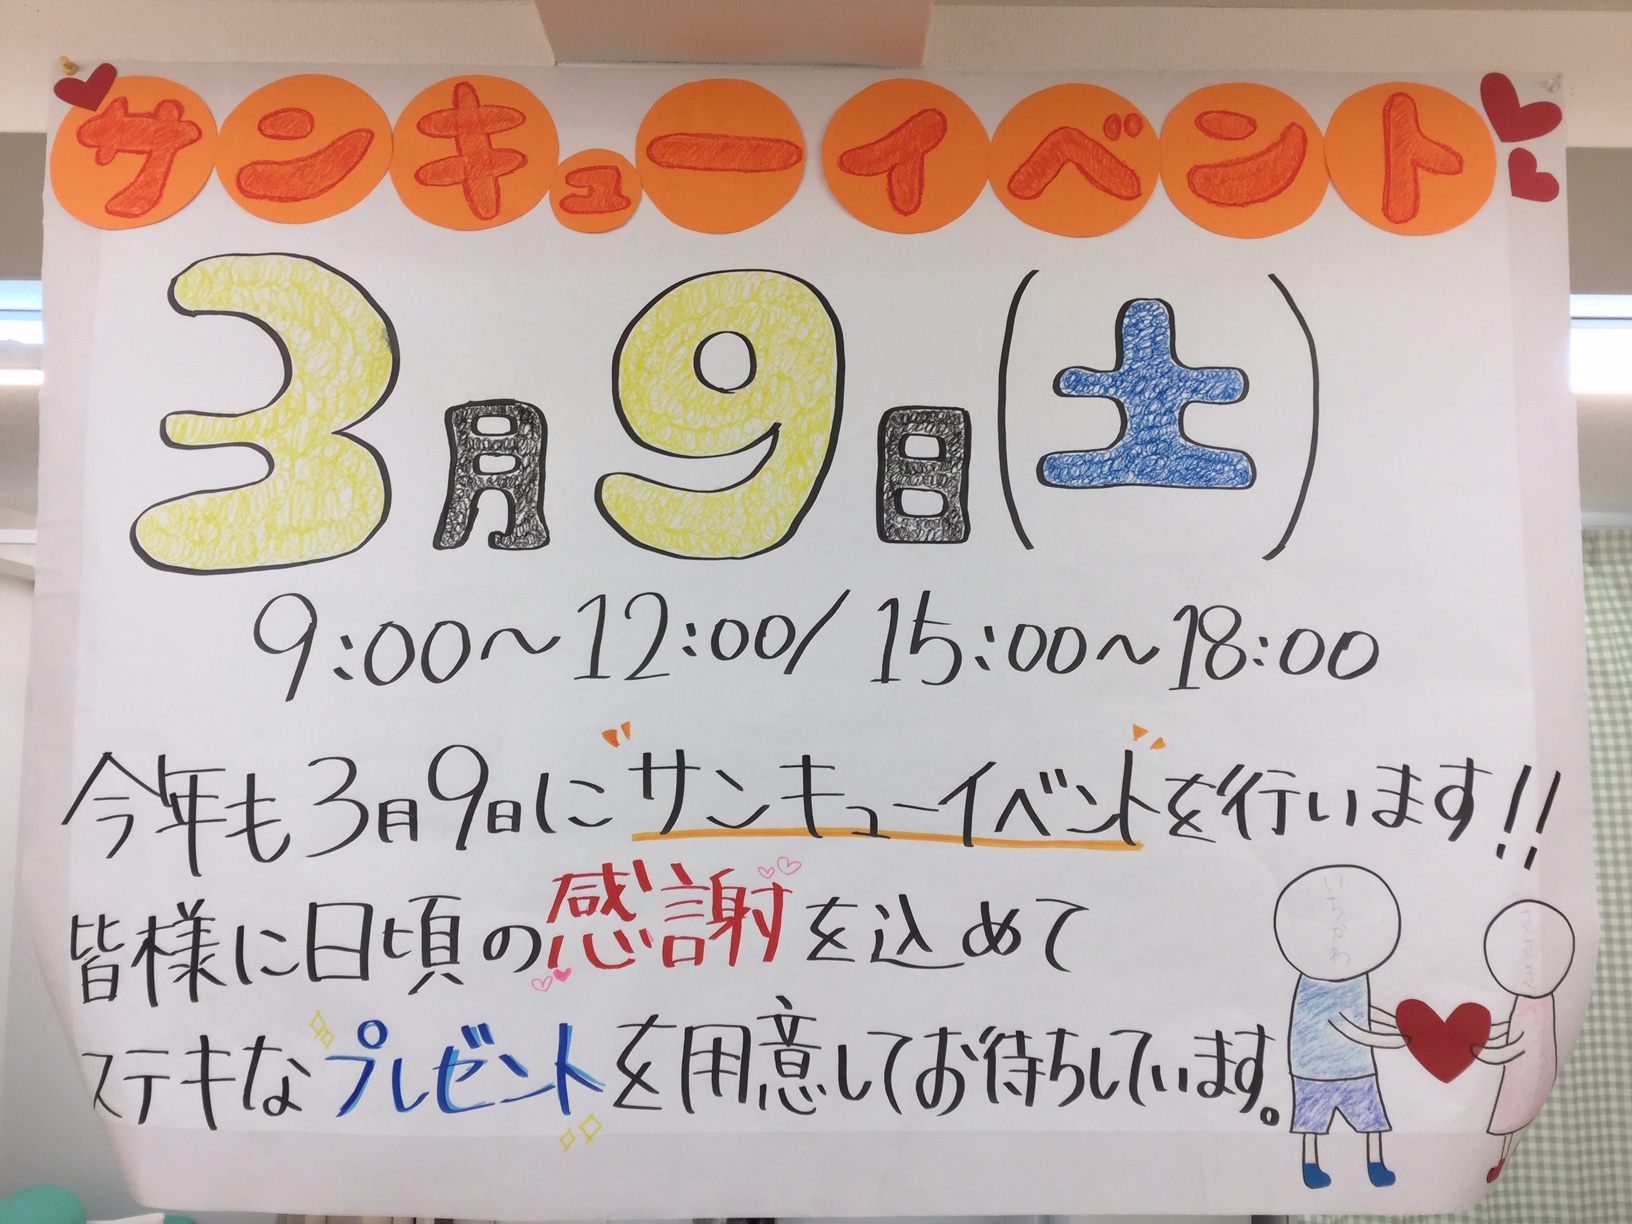 サンキューイベント
3月9日(土)
9:00～12:00/15:00～18:00
今年も3月9日に"サンキューイベント"を行います!!
皆様に日頃の感謝を込めて
ステキなプレゼントを用意してお待ちしています。
いちかわ